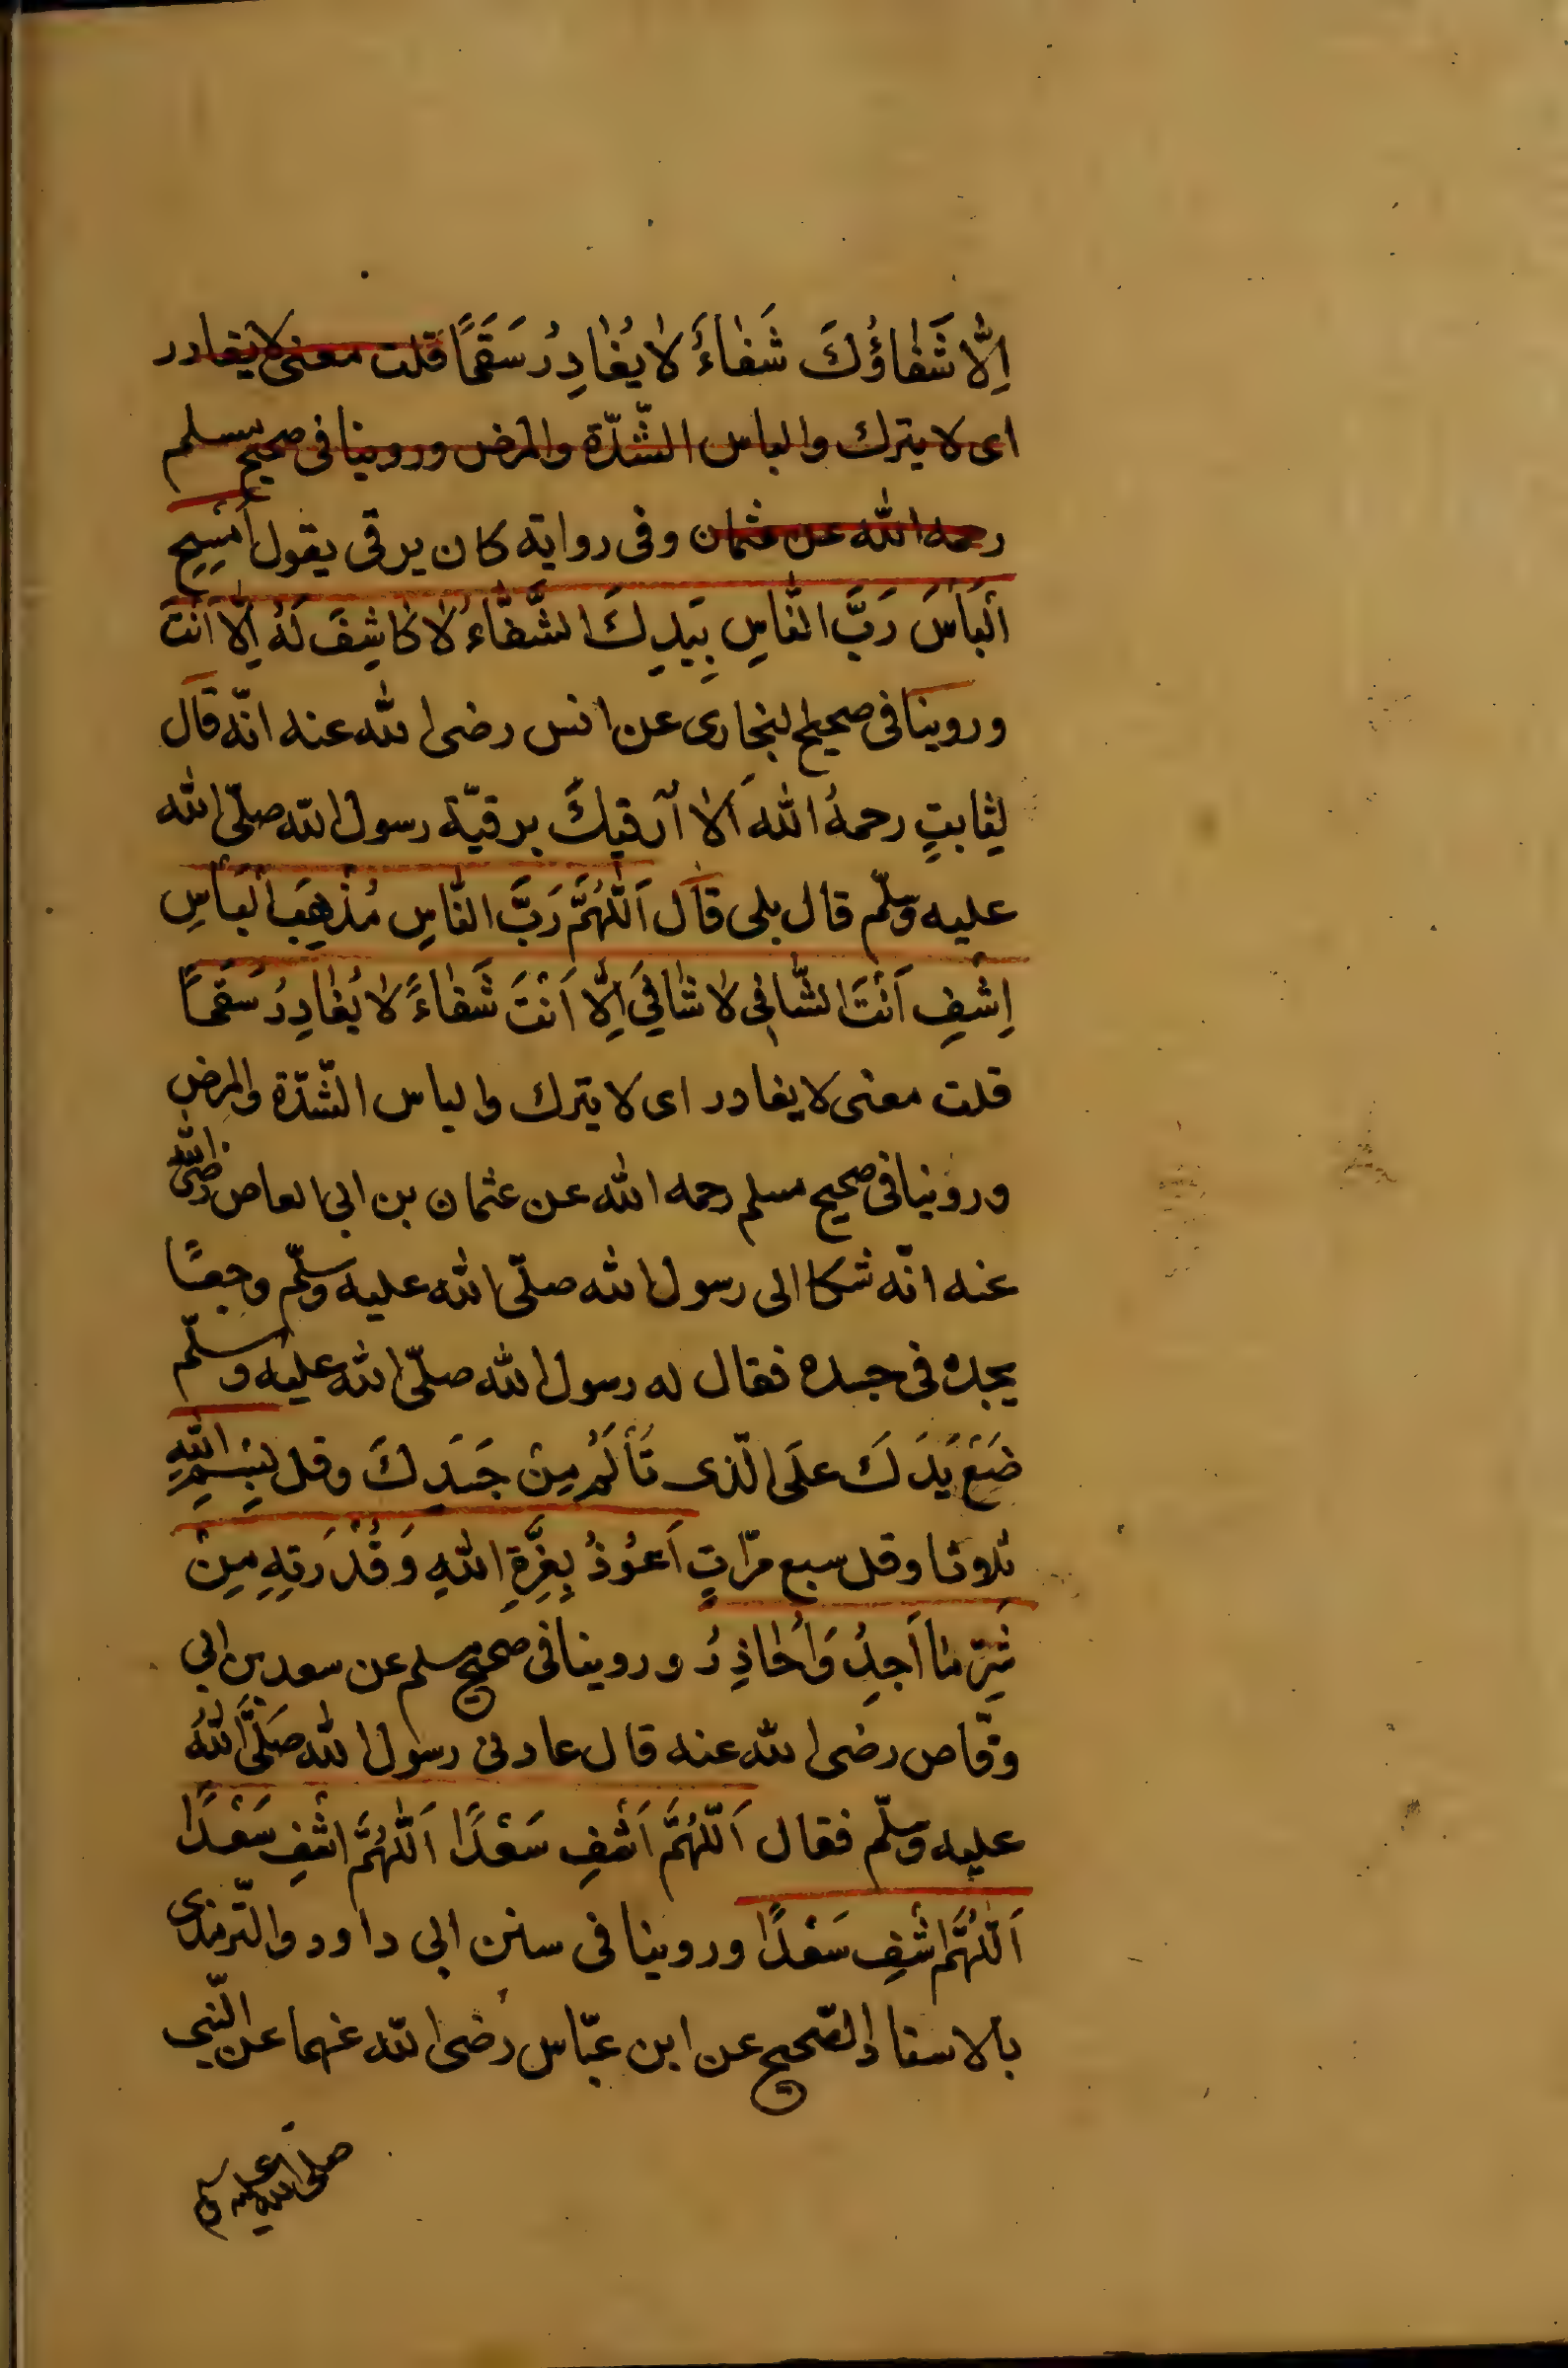 اِلَّا شَفَاؤُكَ شَفَاءً لَا يُغَادِرُ سَقَمًا قلت معنى لا يغادر
اى لا يترك والباس الشّدّة والمرض وروينا فى صحيح مسلم
رحمه الله عن عثمان وفى رواية كان يرقى يقول اَمْسِحِ
اَلْبَأْسَ رَبَّ النَّاسِ بِيَدِكَ الشَّفَاءُ لَا كَاشِفَ لَهُ اِلَّا اَنْتَ
وروينا فى صحيح البخارى عن انس رضى الله عنه انّه قال
لِثابتٍ رحمهُ الله اَلَا اَرقيكَ برقيّة رسول الله صلّى الله
عليه وسلّم قال بلى قال اَللّٰهُمَّ رَبَّ النَّاسِ مُذْهِبَ الْبَأْسِ
اِشْفِ اَنْتَ الشَّافِى لَا شَافِيَ اِلَّا اَنْتَ شَفَاءً لَا يُغَادِرُ سَقَمًا
قلت معنى لا يغادر اى لا يترك والباس الشّدّة والمرض
وروينا فى صحيح مسلم رحمه الله عن عثمان بن ابى العاص رضى الله
عنه انّه شكا الى رسول الله صلّى الله عليه وسلّم وجعًا
يجده فى جسده فقال له رسول الله صلّى الله عليه وسلّم
ضَعْ يَدَكَ عَلَى الّذى تَأْلَمُ مِنْ جَسَدِكَ وقل بِسْمِ اللهِ
ثلاثا وقل سبع مرّاتٍ اَعُوذُ بِعِزَّةِ اللهِ وَقُدْرَتِهِ مِنْ
شَرِّ مَا اَجِدُ وَاُحَاذِرُ وروينا فى صحيح مسلم عن سعد بن ابى
وقّاص رضى الله عنه قال عادنى رسول الله صَلَّى اللهُ
عليه وسلّم فقال اَللّٰهُمَّ اَشْفِ سَعْدًا اَللّٰهُمَّ اشْفِ سَعْدًا
اَللّٰهُمَّ اشْفِ سَعْدًا وروينا فى سنن ابى داود والتّرمذى
بالاسناد الصّحيح عن ابن عبّاس رضى الله عنهما عن النّبى
صلى الله عليه وسلم